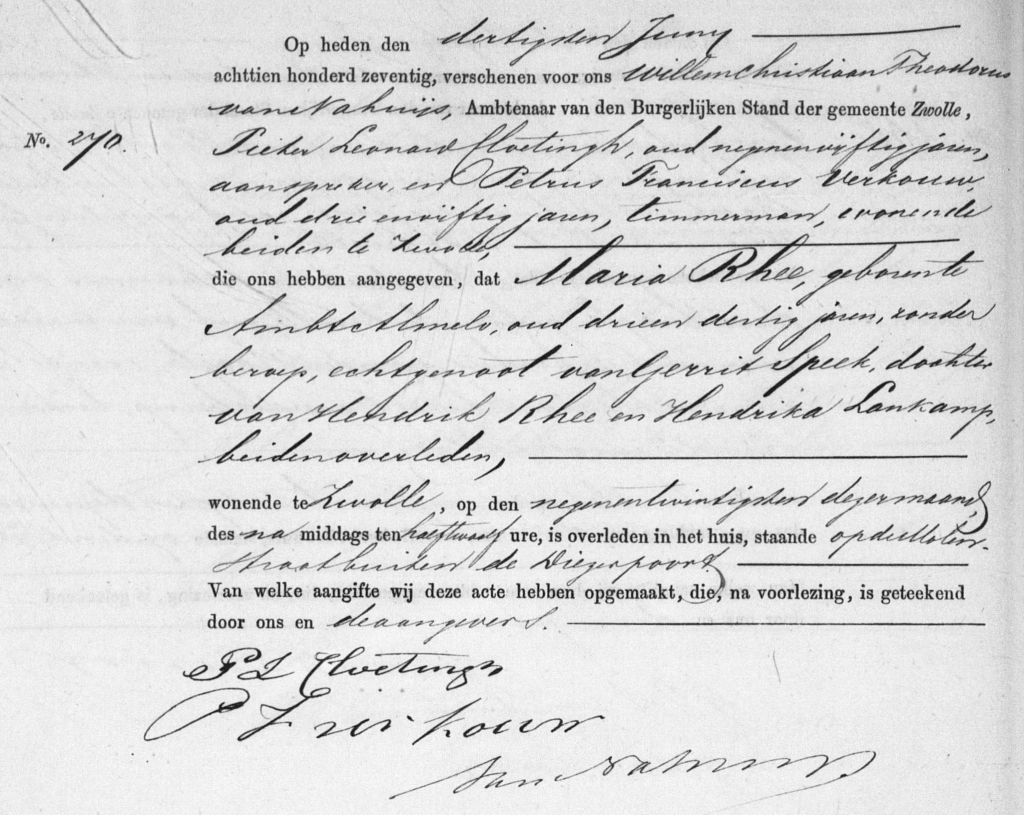 Op heden den dertigsten Juny
achttien honderd zeventig, verschenen voor ons Willem Christiaan Theodorus
van Nahuijs, Ambtenaar van den Burgerlijken Stand der gemeente Zwolle,
No. 270. Pieter Leonard Cloetingh, oud negenenvijftig jaren,
aanspreker, en Petrus Franciscus Verkouw,
oud drie envijftig jaren, timmerman, wonende
beiden te Zwolle,
die ons hebben aangegeven, dat Maria Rhee, geboren te
Ambt Almelo, oud drieen dertig jaren, zonder
beroep, echtgenoot van Gerrit Speek, dochter
van Hendrik Rhee en Hendrika Lankamp,
beiden overleden,
wonende te Zwolle, op den negenentwintigsten dezer maand
des na middags ten half twaalf ure, is overleden in het huis, staande op de
straat buiten de Diezerpoort
Van welke aangifte wij deze acte hebben opgemaakt, die, na voorlezing, is geteekend
door ons en de aangevers.
P L Cloetingh
P F Verkouw
Van Nahuijs